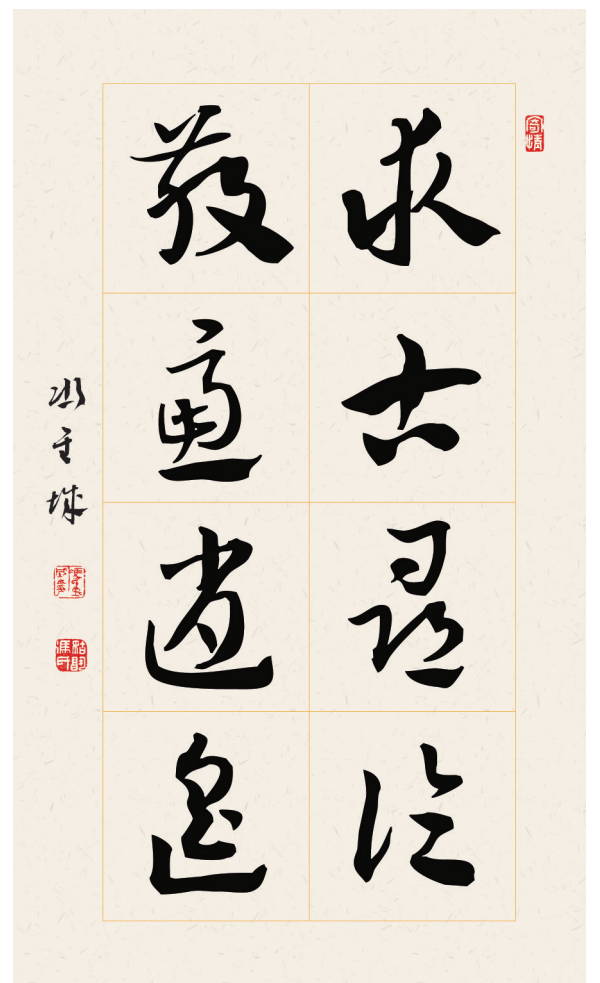 求古尋論
散慮逍遙